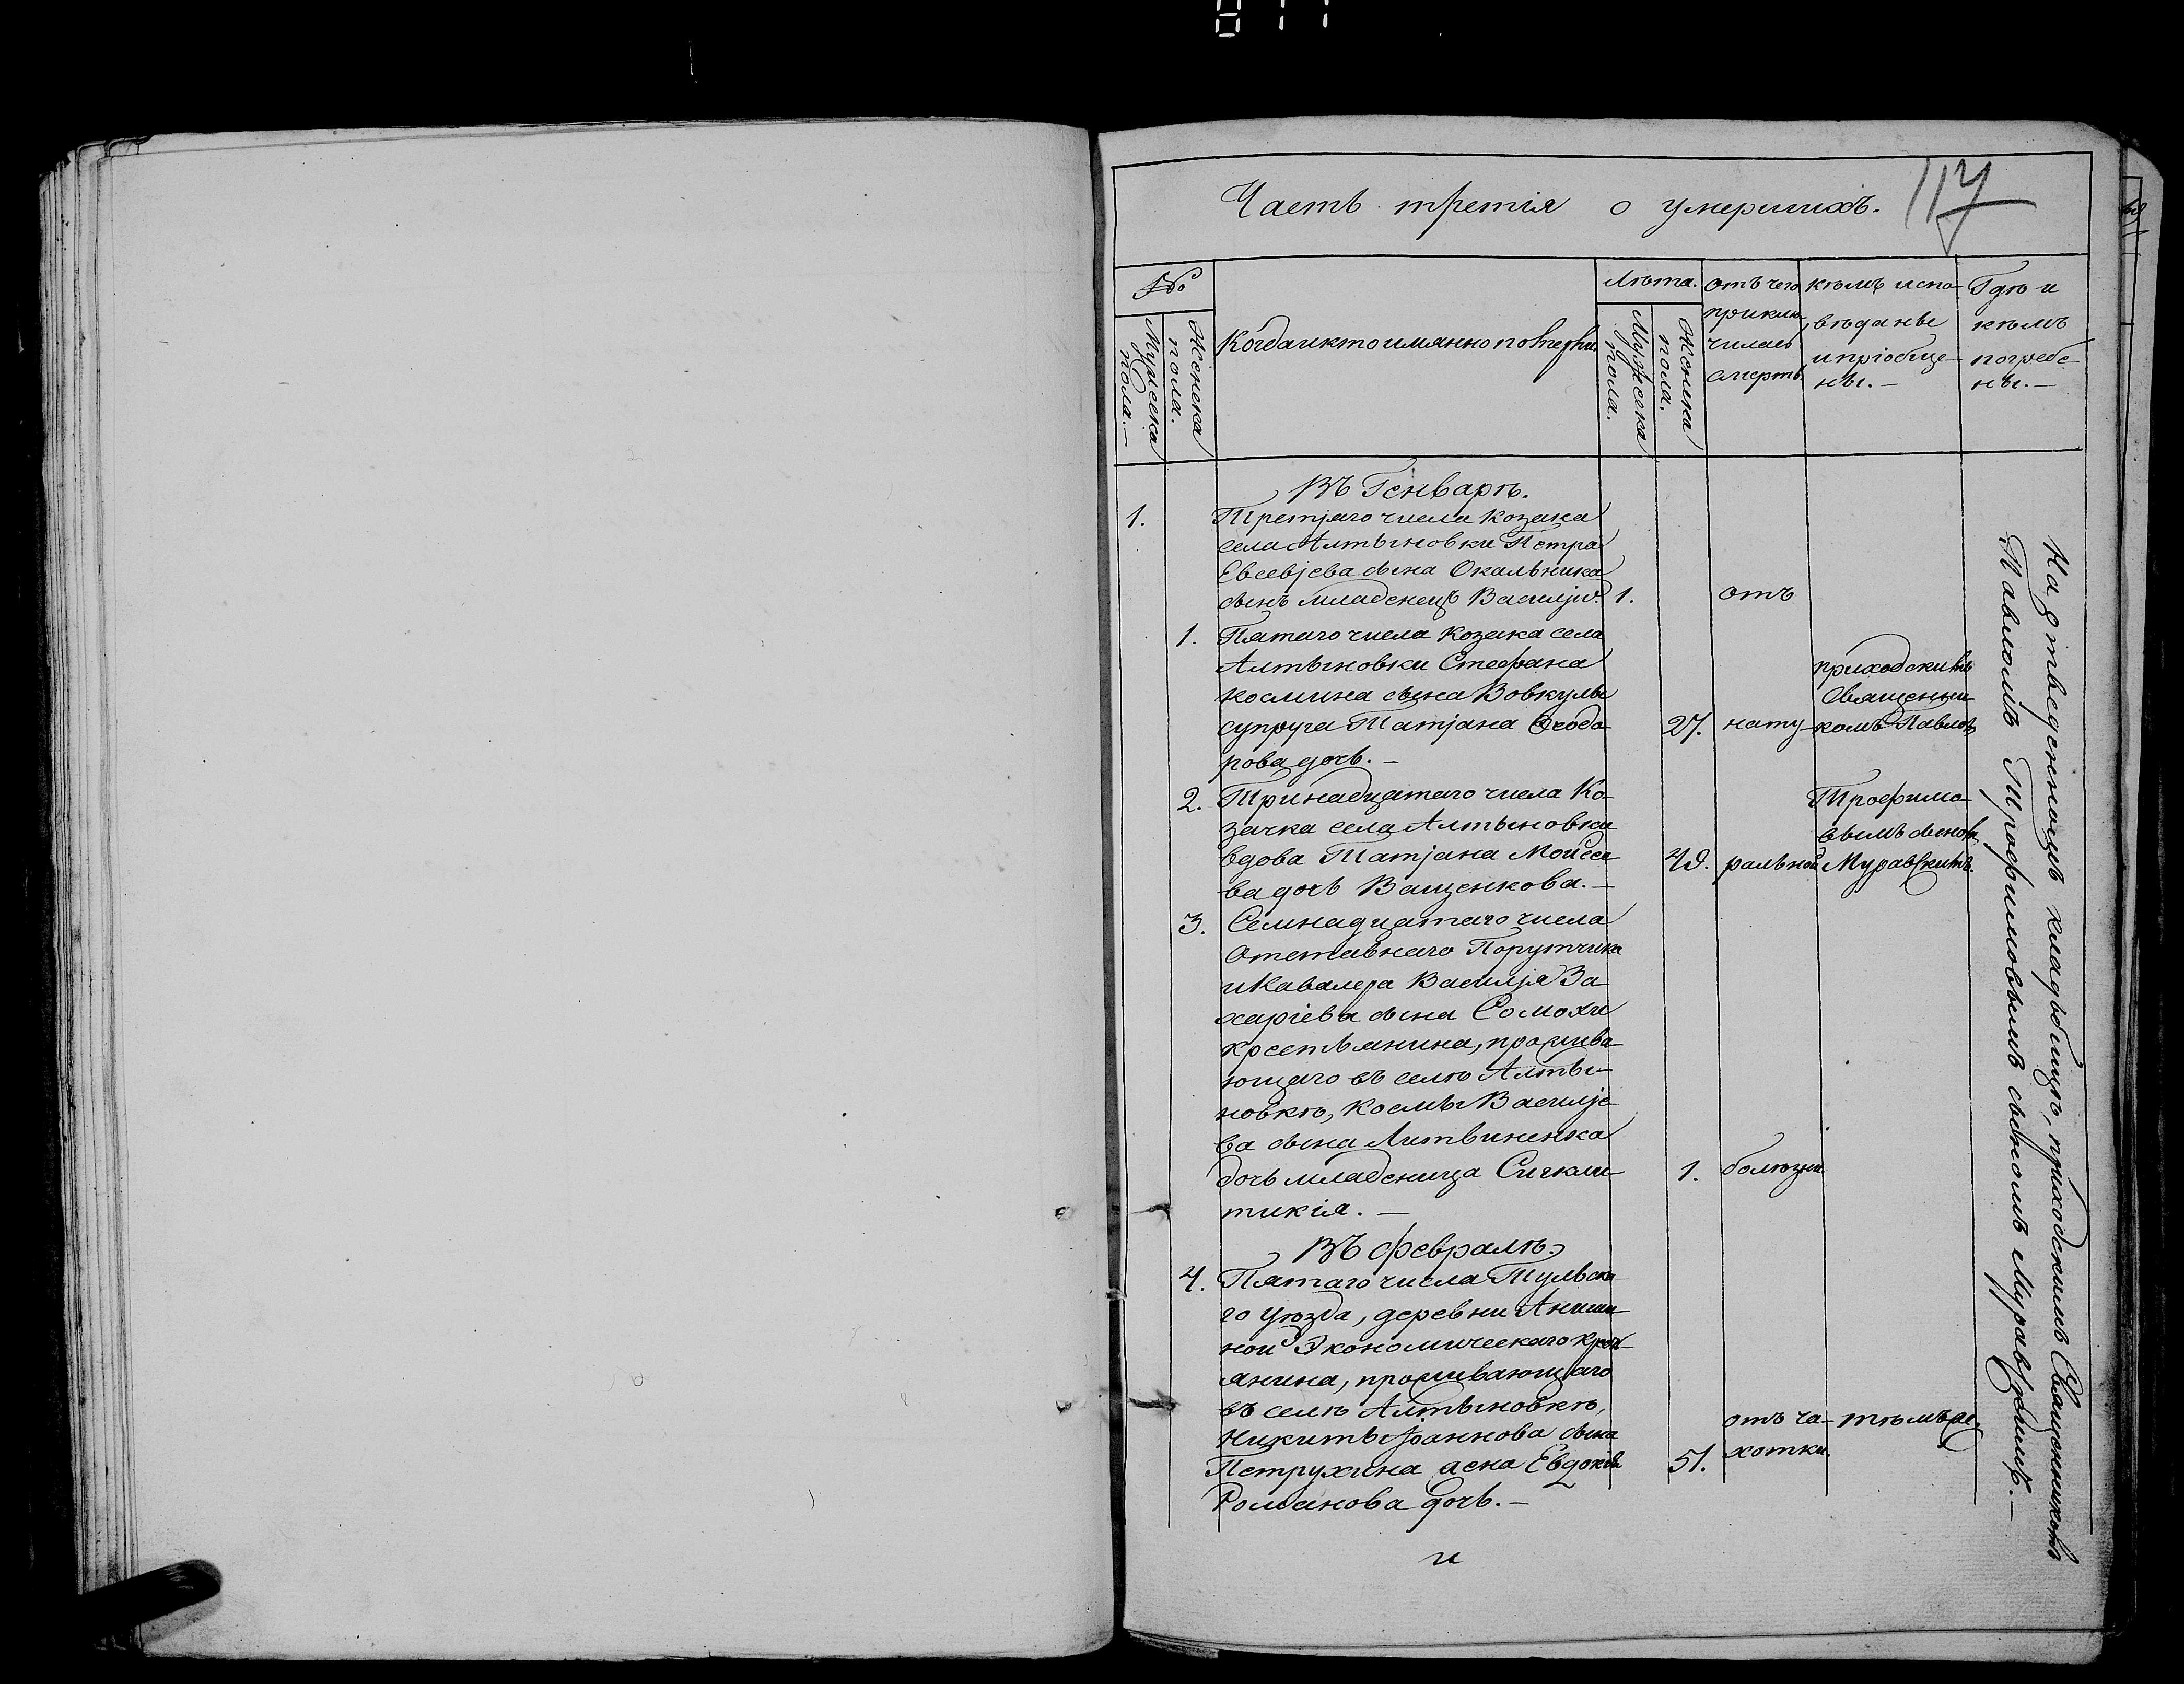 Часть третія о умершихъ.
117
№
Мужеска пола.—
Женска пола.
Когда и кто имянно померли
Лѣта.
Мужеска пола.
Женска пола.
отъ чего
приклю-
чилась
смерть
кѣмъ испо-
вѣданы
и пріобще-
ны.—
Гдѣ и
кѣмъ
погребе-
ны.—
Въ Генварѣ.
1. Третјаго числа козака
села Алтыновки Петра
Евсевјева сына Окальника
сынъ младенецъ Василји. 1. отъ
1. Пятаго числа козака села
Алтыновки Стефана
Космина сына Вовкулы
супруга Татјана Ѳеодо-
рова дочь.— 27. нату-
приходскимъ
Священни-
комъ Павломъ
2. Тринадцатаго числа Ко-
зачка села Алтыновки
вдова Татјана Мойсее-
ва дочь Ващенкова.— ральной
Трофимо-
вымъ сыномъ
Муравскимъ.
3. Семнадцатаго числа
Отставнаго Порутчика
и Кавалера Василја За-
харіева сына Сомохи
крестьянина, прожива-
ющаго въ селѣ Алты-
новкѣ, Космы Василје-
ва сына Литвиненка
дочь младеница Сигкли-
тикія.— 1. болѣзни
Въ Февралѣ.
4. Пятаго числа Тульска-
го уѣзда, деревни Аниши-
ной Экономическаго крест-
янина, проживающаго
въ селѣ Алтыновкѣ,
Никиты Іоаннова сына
Петрухина жена Евдокія
Романова дочь.— 51. отъ ча-
хотки.
тѣмъ же.
На отведенномъ кладбищѣ, приходскимъ Священникомъ
Павломъ Трофимовымъ сыномъ Муравскимъ.—
и